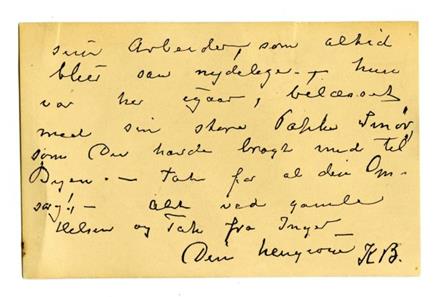 sine Arbeider, som altid
blir saa nydelige. — hun
var her igaar, belæsset
med sin store Pakke Smør,
som Du havde bragt med til
Byen. — Tak for al din Om-
sorg! — Alt ved gamle
Hilsen og Tak fra Inger
Din hengivne K B.